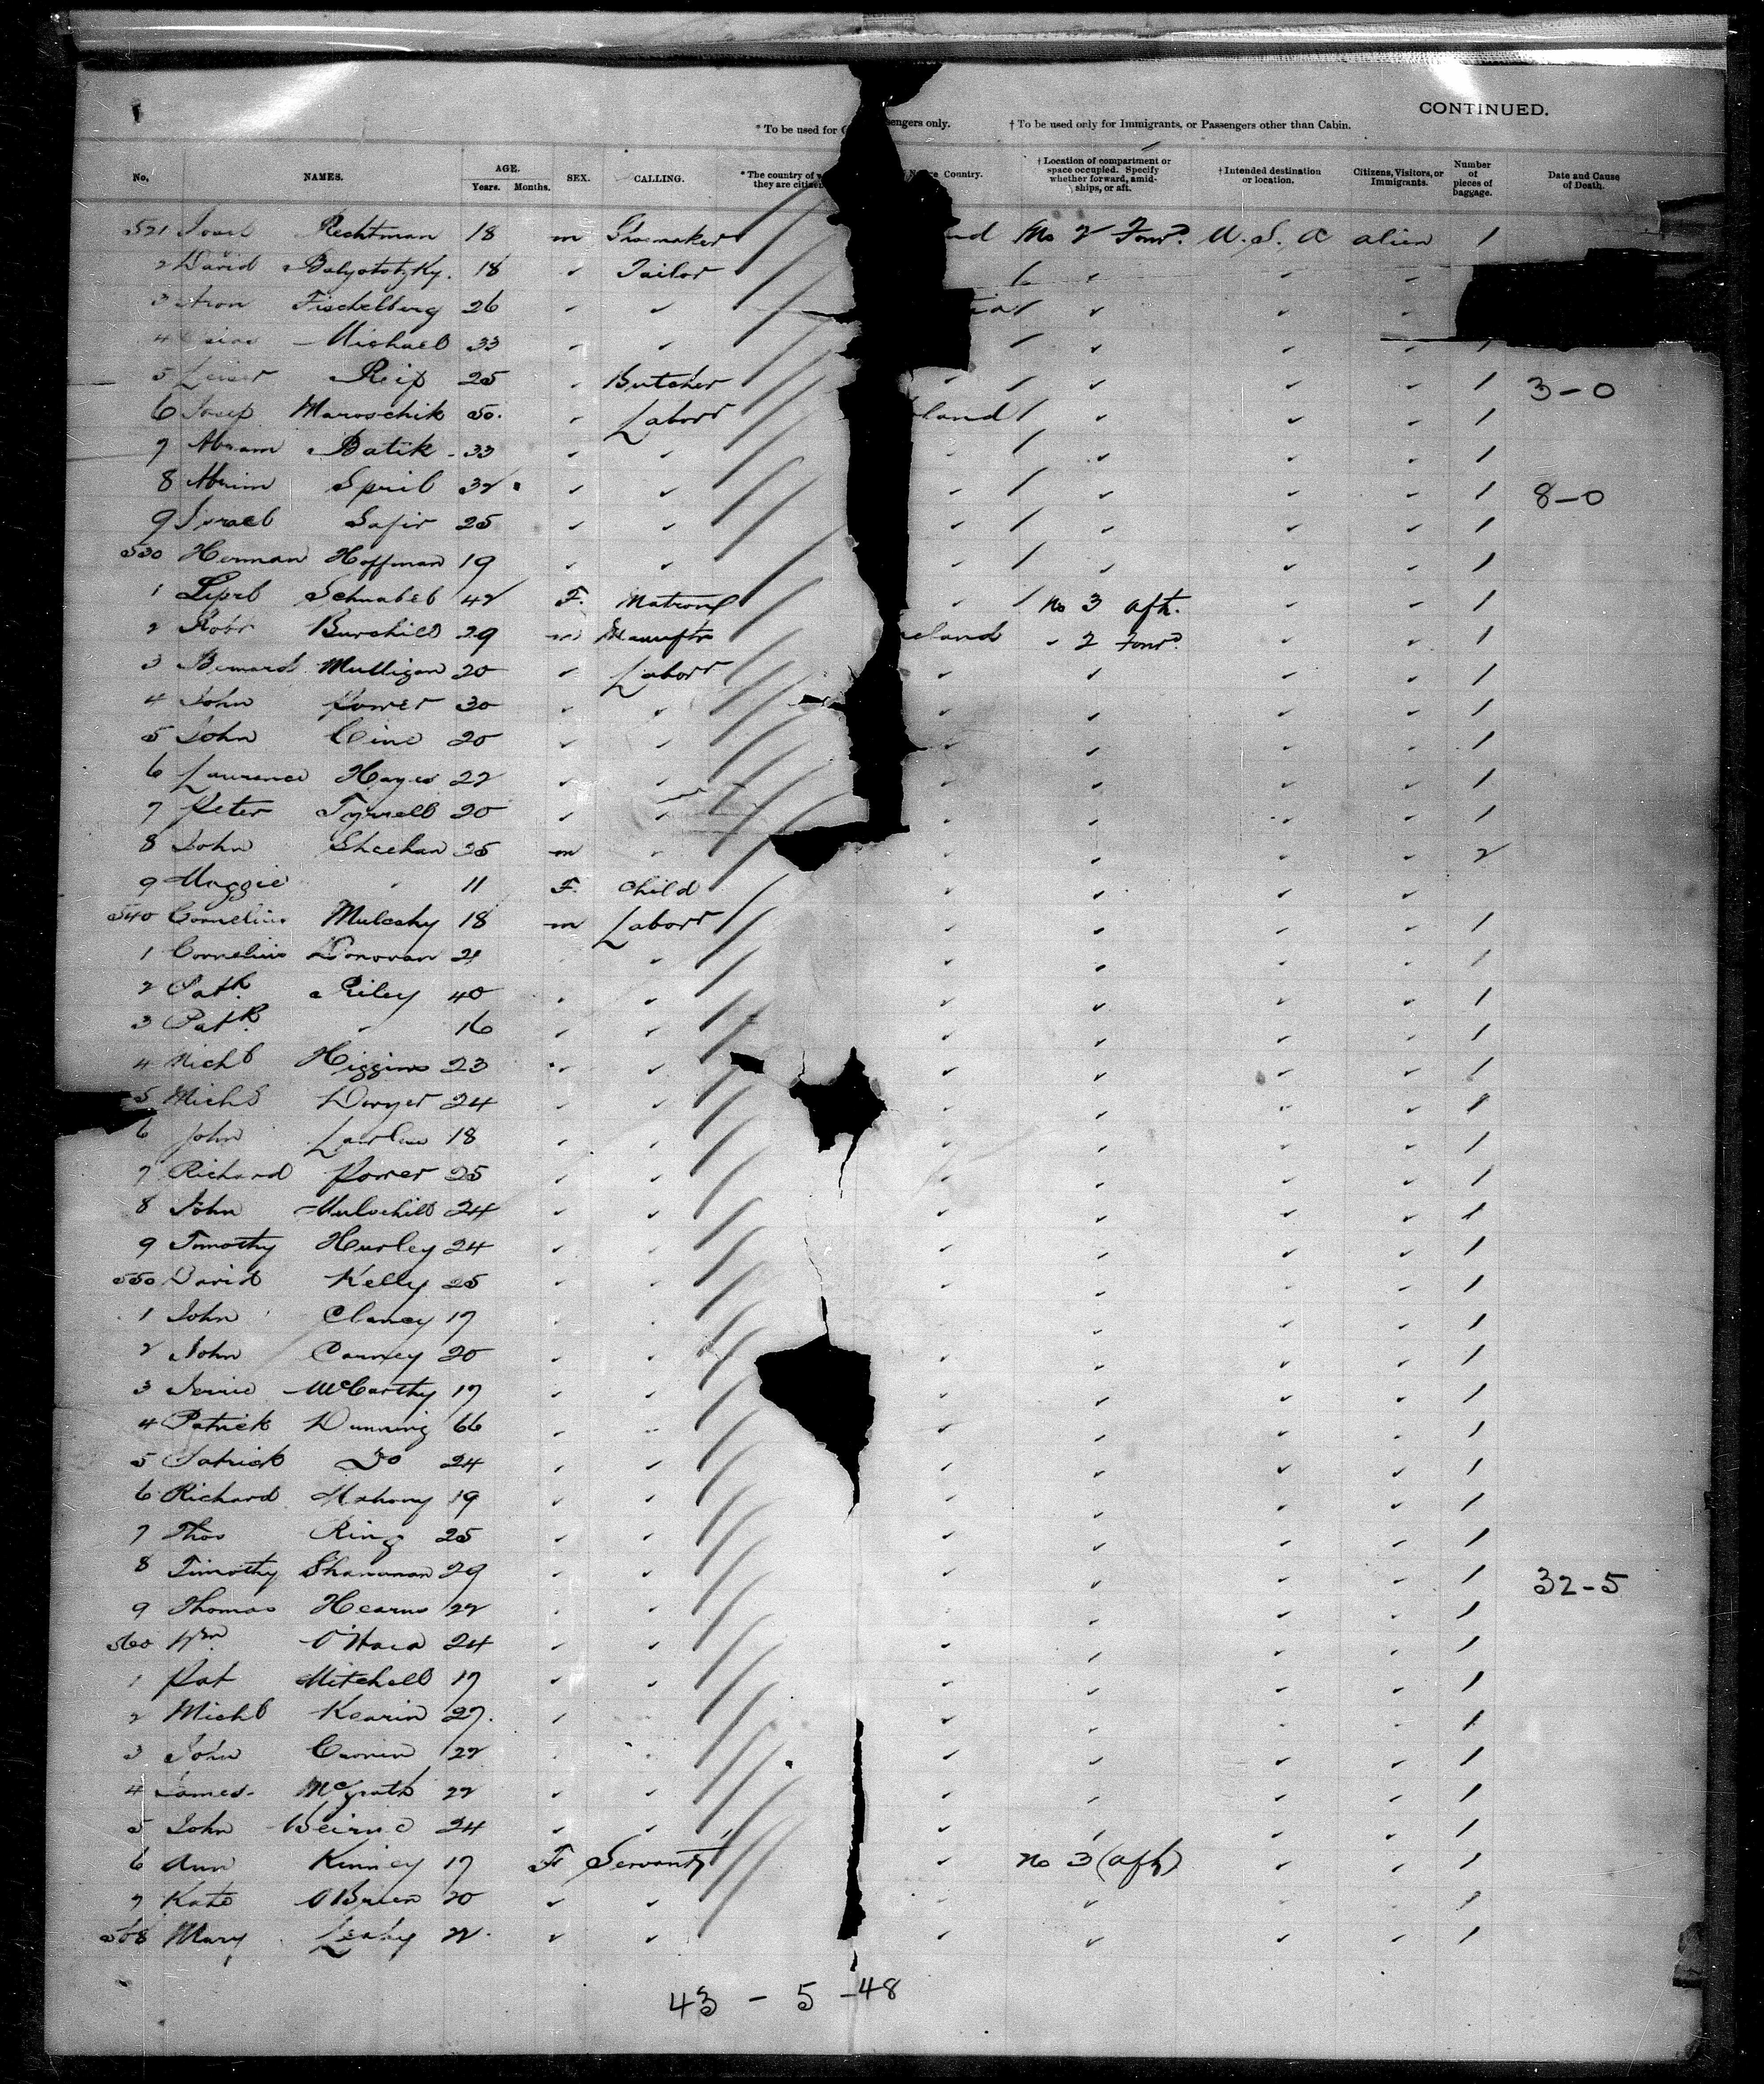 CONTINUED.
* To be used for C sengers only. † To be used only for Immigrants, or Passengers other than Cabin.
No. NAMES. AGE. Years. Months. SEX. CALLING. * The country of w they are citizen Country. † Location of compartment or space occupied. Specify whether forward, amidships, or aft. † Intended destination or location. Citizens, Visitors, or Immigrants. Number of pieces of baggage. Date and Cause of Death.
521 Rechtman 18 m Shoemaker nd No 2 Forwd. U. S. A alien 1
2 David 18 ✓ Tailor ✓ ✓ ✓
3 Aron Fischelberg 26 ✓ ✓ ✓ ✓ ✓
4 Michael 33 ✓ ✓ ✓ ✓ ✓ 1
5 Leiser Reip 25 ✓ Butcher ✓ ✓ ✓ ✓ 1 3-0
6 Josep Maroschik 50. ✓ Laborr land ✓ ✓ ✓ 1
7 Abram Batik 33 ✓ ✓ ✓ ✓ ✓ 1
8 Spril 32 ✓ ✓ ✓ ✓ ✓ ✓ 1 8-0
9 Israel Safir 25 ✓ ✓ ✓ ✓ ✓ ✓ 1
530 Herman Hoffman 19 ✓ ✓ ✓ ✓ ✓ ✓ 1
1 Schnabel 42 F. Matron ✓ No 3 aft. ✓ ✓ 1
2 Robt Burchill 29 m eland " 2 Forwd. ✓ ✓ 1
3 Bernard Mulligan 20 ✓ Laborr ✓ ✓ ✓ 1
4 John Power 30 ✓ ✓ ✓ ✓ ✓ 1
5 John 20 ✓ ✓ ✓ ✓ ✓ ✓ 1
6 Laurence Hayes 22 ✓ ✓ ✓ ✓ ✓ ✓ 1
7 Peter Tyrrell 20 ✓ ✓ ✓ ✓ ✓ ✓ 1
8 John Sheehan 35 m ✓ ✓ ✓ ✓ ✓ 2
9 Maggie " 11 F. Child ✓ ✓ ✓ ✓
540 Cornelius Mulcahy 18 m Laborr ✓ ✓ ✓ ✓ 1
1 Cornelius Donovan 21 ✓ ✓ ✓ ✓ ✓ 1
2 Patk Riley 40 ✓ ✓ ✓ ✓ ✓ ✓ 1
3 Patk " 16 ✓ ✓ ✓ ✓ ✓ ✓ 1
4 Michl Higgins 23 ✓ ✓ ✓ ✓ ✓ ✓ 1
5 Michl Dwyer 24 ✓ ✓ ✓ ✓ ✓ ✓ 1
6 John Lawlor 18 ✓ ✓ ✓ ✓ ✓ ✓ 1
7 Richard Power 25 ✓ ✓ ✓ ✓ ✓ ✓ 1
8 John Mulvehill 24 ✓ ✓ ✓ ✓ ✓ ✓ 1
9 Timothy Hurley 24 ✓ ✓ ✓ ✓ ✓ ✓ 1
550 David Kelly 25 ✓ ✓ ✓ ✓ ✓ ✓ 1
1 John Clancy 17 ✓ ✓ ✓ ✓ ✓ ✓ 1
2 John Carney 20 ✓ ✓ ✓ ✓ ✓ ✓ 1
3 Jerrie McCarthy 17 ✓ ✓ ✓ ✓ ✓ ✓ 1
4 Patrick Dunning 66 ✓ ✓ ✓ ✓ ✓ ✓ 1
5 Patrick Do 24 ✓ ✓ ✓ ✓ ✓ ✓ 1
6 Richard Mahony 19 ✓ ✓ ✓ ✓ ✓ ✓ 1
7 Thos Ring 25 ✓ ✓ ✓ ✓ ✓ ✓ 1
8 Timothy Shannnan 29 ✓ ✓ ✓ ✓ ✓ ✓ 1 32-5
9 Thomas Hearns 22 ✓ ✓ ✓ ✓ ✓ ✓ 1
560 Wm O'Hara 24 ✓ ✓ ✓ ✓ ✓ ✓ 1
1 Pat Mitchell 17 ✓ ✓ ✓ ✓ ✓ ✓ 1
2 Michl Kearin 27. ✓ ✓ ✓ ✓ ✓ 1
3 John Cronin 22 ✓ ✓ ✓ ✓ ✓ ✓ 1
4 James McGrath 22 ✓ ✓ ✓ ✓ ✓ ✓ 1
5 John Beirne 24 ✓ ✓ ✓ ✓ ✓ ✓ 1
6 Ann Kinney 17 F Servant ✓ No 3 (aft) ✓ ✓ 1
7 Kate OBrien 20 ✓ ✓ ✓ ✓ ✓ ✓ 1
568 Mary Leahy 22 ✓ ✓ ✓ ✓ ✓ ✓ 1
43 - 5 - 48